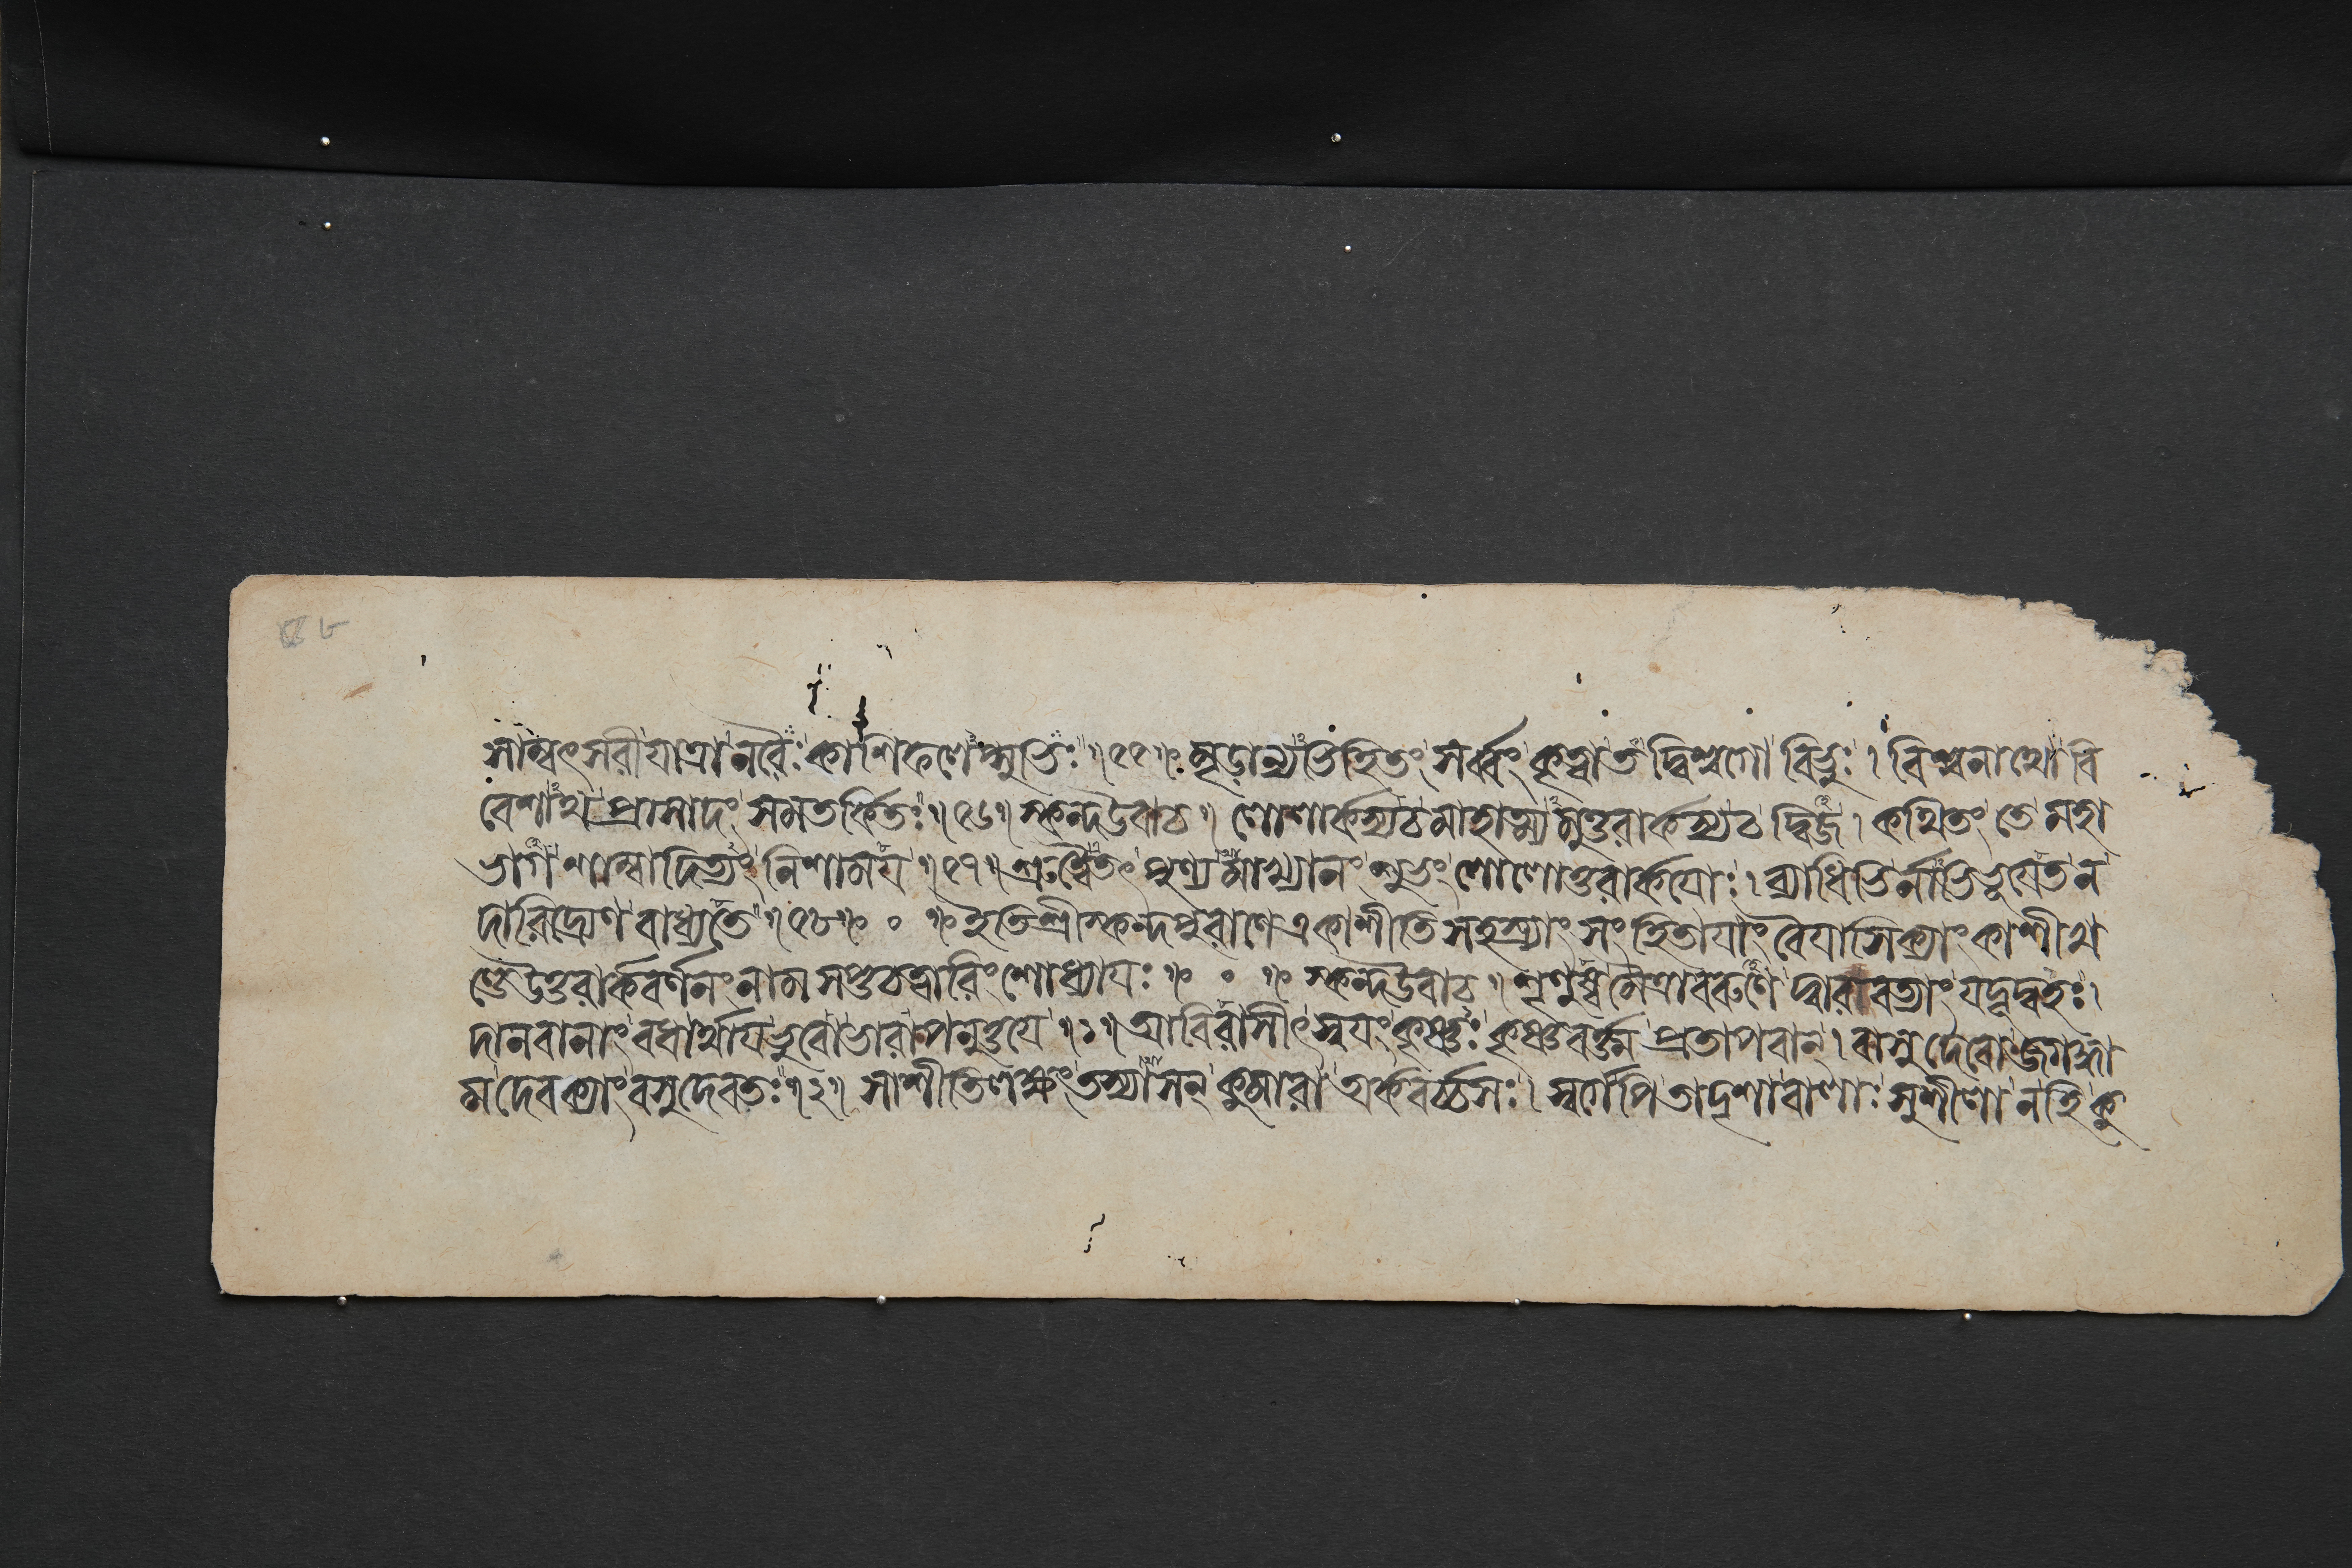 সাম্বৎসরী যাত্রা নরৈঃ কাশিফলেপ্সুভিঃ ॥ ৫৫ ॥ মৃড়ান্যভিহিতং সর্ব্বং কৃত্বা তদ্বিশ্বগো বিভুঃ । বিশ্বনাথো বি
বেশাথ প্রাসাদং সমতর্কিতঃ ॥ ৫৬ ॥ স্কন্দ উবাচ ॥ লোলার্কস্য চ মাহাত্ম্যমুত্তরার্কস্য চ দ্বিজ । কথিতং তে মহা
ভাগ শাম্বাদিত্যং নিশাময় ॥ ৫৭ ॥ শ্রুত্বৈতৎ পুণ্যমাখ্যানং শুভং লোলোত্তরার্কয়োঃ । ব্যাধিভির্নাভিভূয়েত ন
দারিদ্র্যেণ বাধ্যতে ॥ ৫৮ ॥ ० ॥ ইতি শ্রীস্কন্দপুরাণে একাশীতিসহস্র্যাং সংহিতায়াং বৈয়াসিক্যাং কাশীখ
ণ্ডে উত্তরার্কবর্ণনং নাম সপ্তচত্বারিংশোধ্যায়ঃ ॥ ० ॥ স্কন্দ উবাচ ॥ শৃণুষ্ব মৈত্রাবরুণে দ্বারাবত্যাং যদূদ্বহঃ ।
দানবানাং বধার্থায় ভুবো ভারাপনুত্তয়ে ॥ ১ ॥ আবিরাসীৎ স্বয়ং কৃষ্ণঃ কৃষ্ণবর্ত্ম প্রতাপবান্ । বাসুদেবো জগদ্ধা
ম দেবক্যাং বসুদেবতঃ ॥ ২ ॥ সাশীতিলক্ষং তস্যাসন্ কুমারা অর্কবর্চ্চসঃ । স্বর্গেপি তাদৃশা বালাঃ সুশীলা ন হি কু